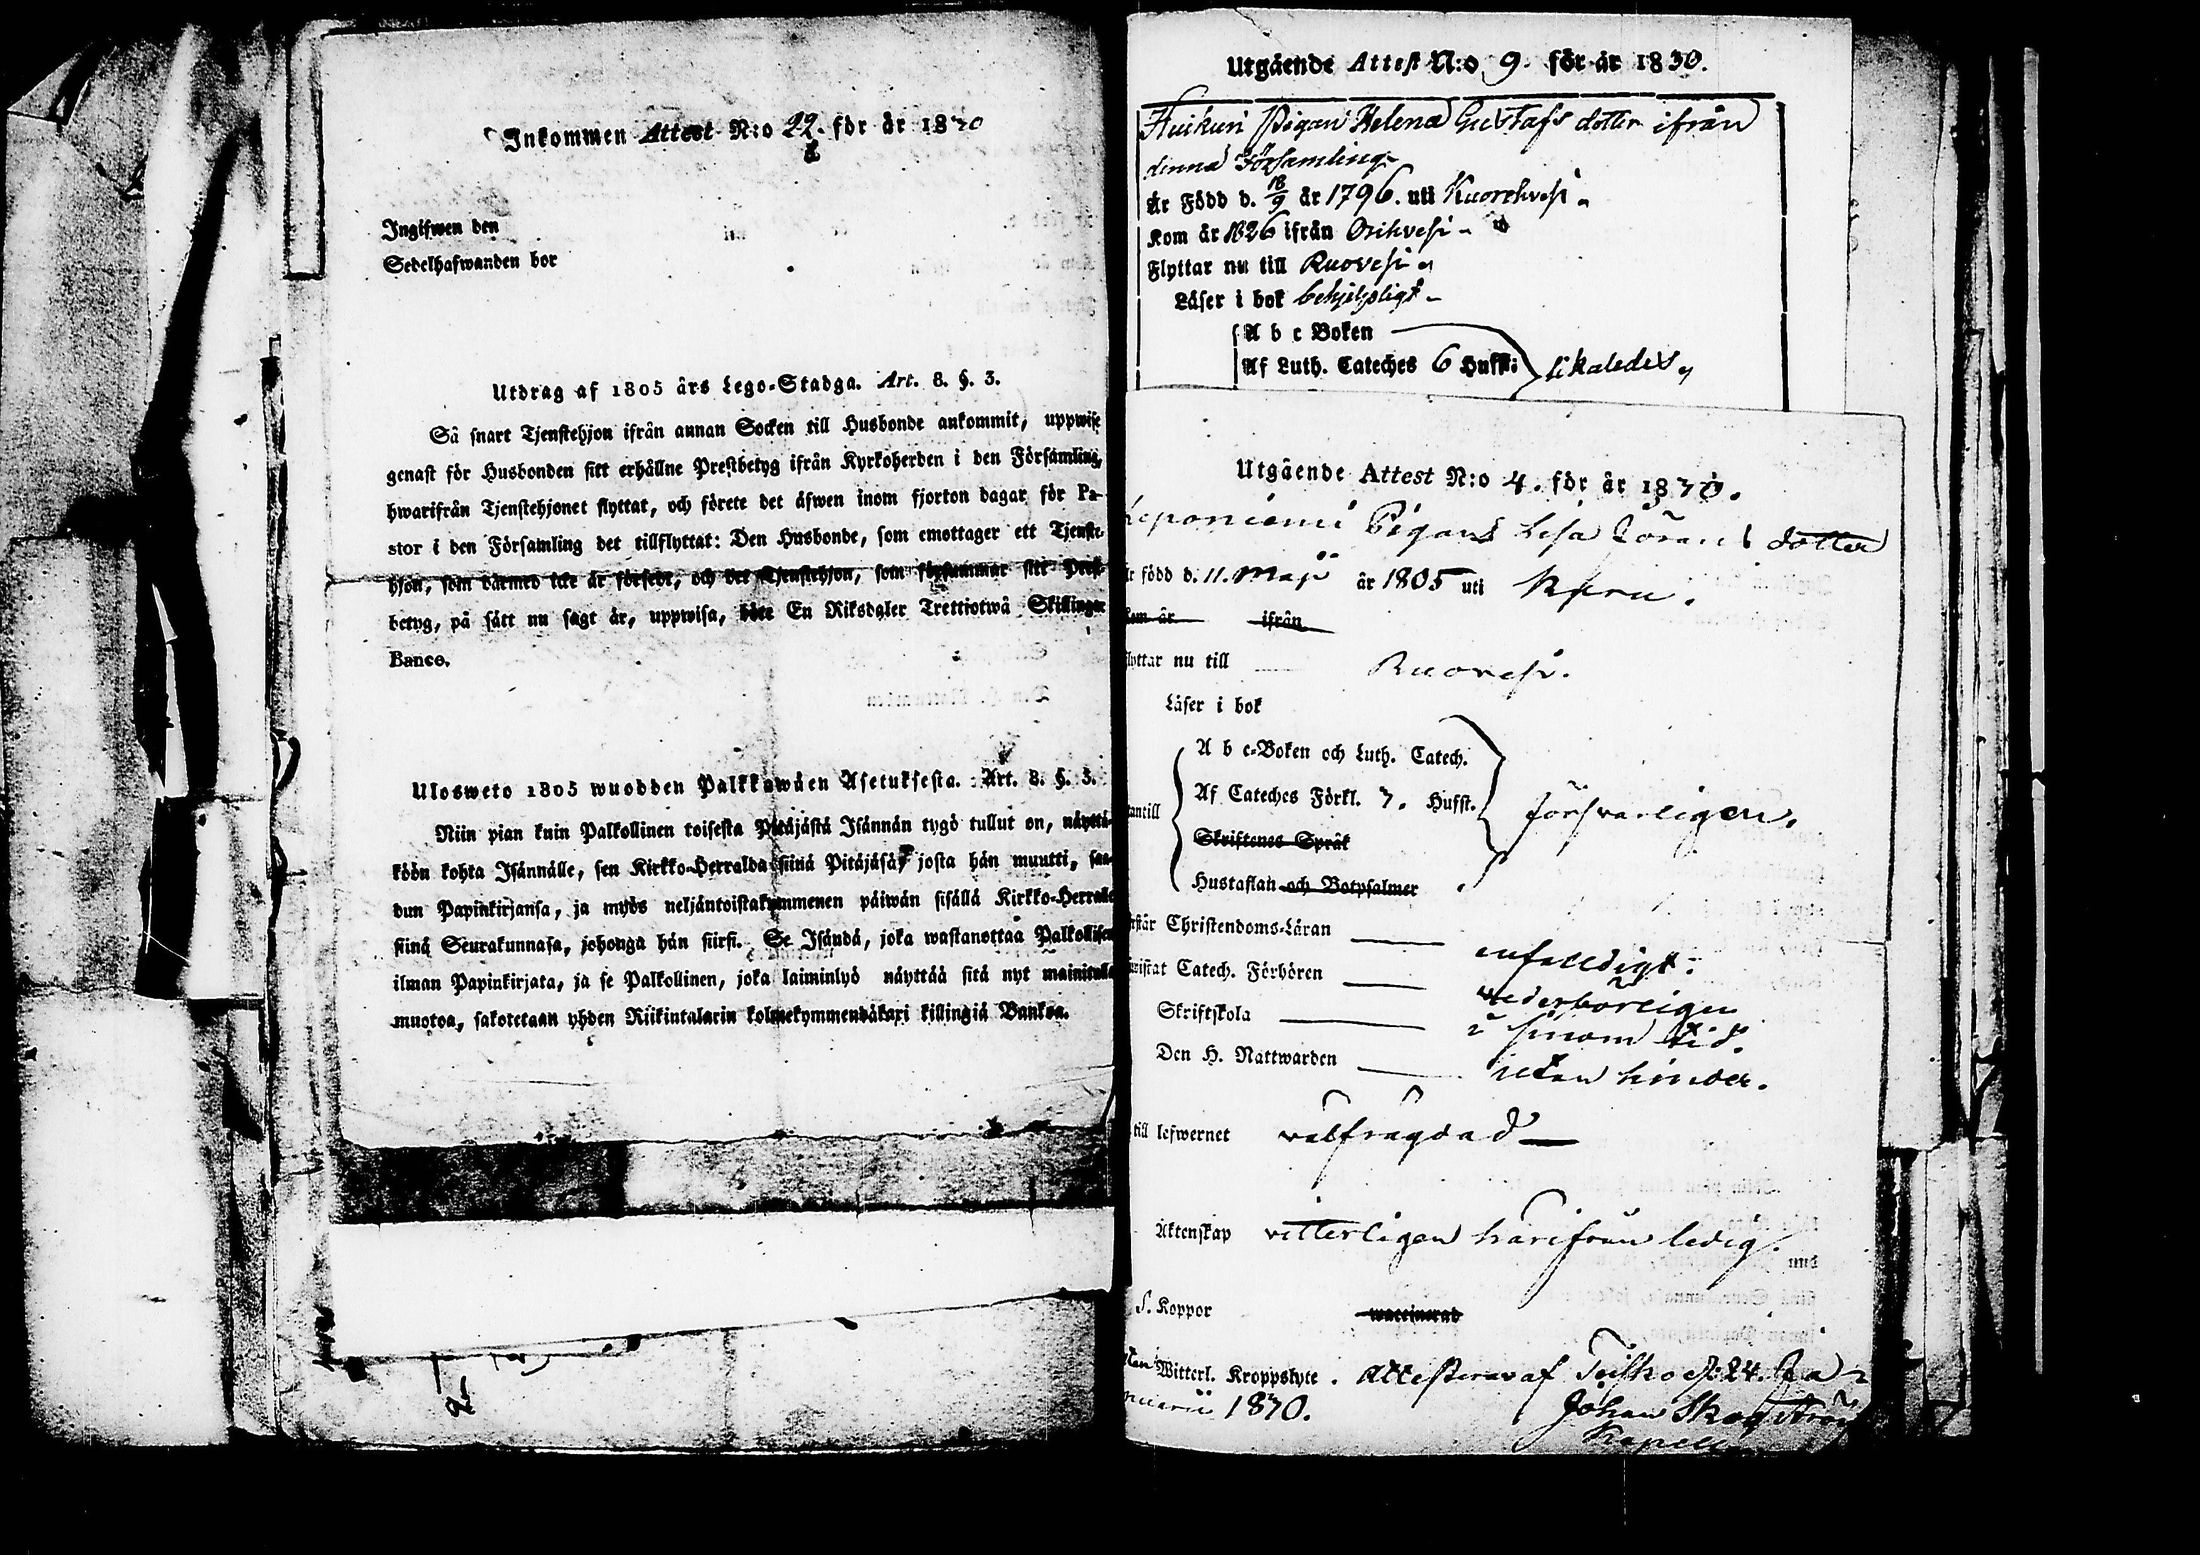 Inkommen Attest N:o 22. för år 1830
Ingifwen den
Sedelhafwanden bor
Utdrag af 1805 års Lego-Stadga. Art. 8. §. 3.
Så snart Tjenstehjon ifrån annan Socken till Husbonde ankommit, uppwise
genast för Husbonden sitt erhållne Prestbetyg ifrån Kyrkoherden i den Församling,
hwarifrån Tjenstehjonet flyttat, och förete det äfwen inom fjorton dagar för Pa-
stor i den Församling det tillflyttat: Den Husbonde, som emottager ett Tjenste-
hjon, som därmed icke är försedt, och det Tjenstehjon, som försummar sitt Prest-
betyg, på sätt nu sagt är, uppwisa, böte En Riksdaler Trettiotwå Skillingar
Banco.
Ulosweto 1805 wuodden Palkkawäen Asetuksesta. Art. 8. §. 3.
Niin pian kuin Palkollinen toisesta Pitäjästä Isännän tygö tullut on, näyttä-
köön kohta Isännälle, sen Kirkko-Herralda siinä Pitäjäsä, josta hän muutti, saa-
dun Papinkirjansa, ja myös neljäntoistakymmenen päiwän sisällä Kirkko-Herralle
siinä Seurakunnasa, johonga hän siirsi. Se Isändä, joka wastanottaa Palkollisen
ilman Papinkirjata, ja se Palkollinen, joka laiminlyö näyttää sitä nyt mainitulla
muotoa, sakotetaan yhden Riikintalarin kolmekymmendäkaxi killingiä Bankoa.
Utgående Attest N:o 9. för år 1830.
Huikuri Pigan Helena Gustafs dotter ifrån
denna Församling
är Född d. 18/9 år 1796. uti Kuorehvesi
Kom år 1826 ifrån Orihvesi
Flyttar nu till Ruovesi
Läser i bok behjelpligt
A b c Boken
Af Luth. Cateches 6 Hufst: likaledes
Utgående Attest N:o 4. för år 1830.
Pigan Lisa Görans dotter
är född d. 11. Maji år 1805 uti Kuru.
Kom år ifrån
flyttar nu till Ruovesi.
Läser i bok
A b c-Boken och Luth. Catech.
Af Cateches Förkl. 7. Hufst.
utantill försvarligen.
Skriftenes Språk
Hustaflan och Botpsalmer
Christendoms-Läran enfaldigt.
Catech. Förhören vederbörligen
Skriftskola i sinom tid.
Den H. Nattwarden utan hinder.
till lefwernet välfrägdad
Äktenskap vitterligen härifrån ledig.
S. Koppor waccinerad
utan Witterl. Kroppslyte. Attesteras af Teisko d. 24. Ja-
nuarii 1830. Johan Skogström
Kapell